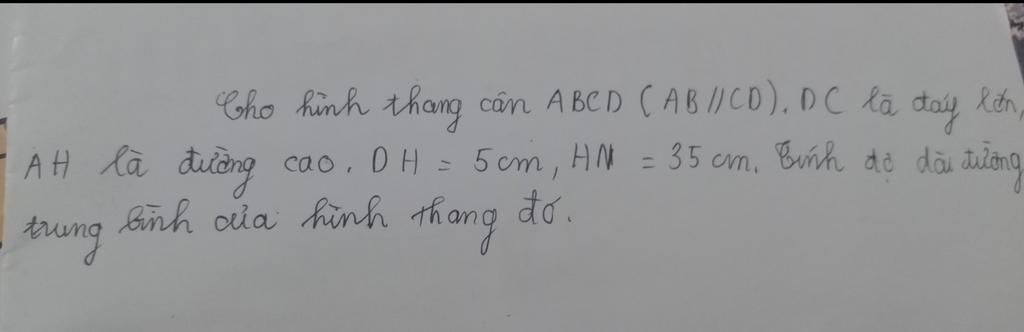 Cho hình thang cân ABCD (AB//CD). DC là đáy lớn,
AH là đường cao. DH = 5cm, HN = 35 cm. Tính độ dài đường
trung bình của hình thang đó.